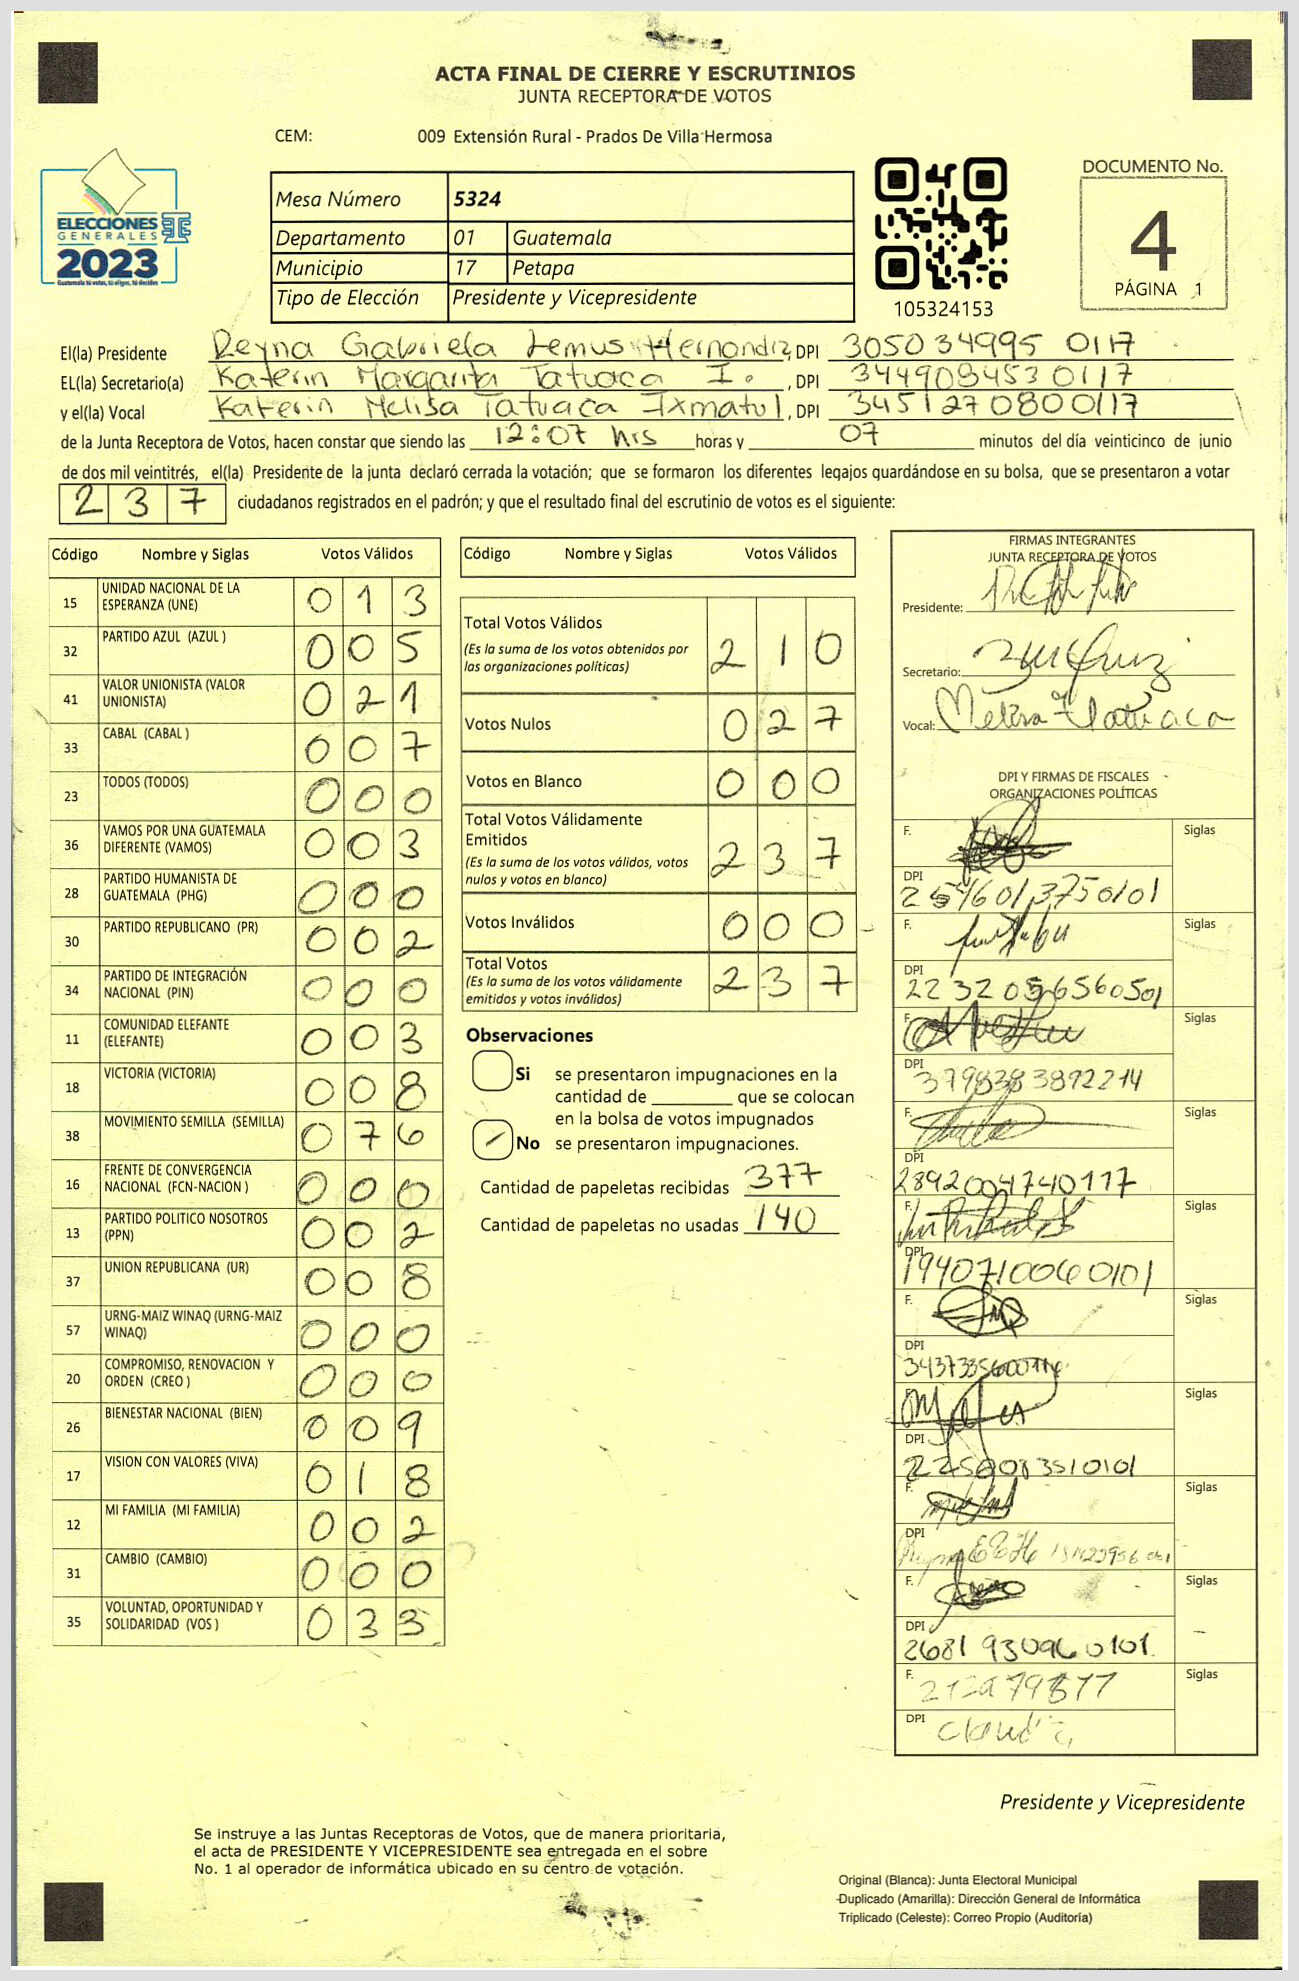 ACTA FINAL DE CIERRE Y ESCRUTINIOS
JUNTA RECEPTORA DE VOTOS
CEM: 009 Extensión Rural - Prados De Villa Hermosa
ELECCIONES
GENERALES
2023
Guatemala tú votas, tú eliges, tú decides
Mesa Número 5324
Departamento 01 Guatemala
Municipio 17 Petapa
Tipo de Elección Presidente y Vicepresidente
105324153
DOCUMENTO No.
4
PÁGINA 1
El(la) Presidente Reyna Gabriela Lemus Hernandiz, DPI 305034995 0117
EL(la) Secretario(a) Katerin Margarita Tatuaca I. , DPI 344909453 0117
y el(la) Vocal Katerin Melisa Tatuaca Ixmatul, DPI 3451270800117
de la Junta Receptora de Votos, hacen constar que siendo las 12:07 hrs horas y 07 minutos del día veinticinco de junio
de dos mil veintitrés, el(la) Presidente de la junta declaró cerrada la votación; que se formaron los diferentes legajos guardándose en su bolsa, que se presentaron a votar
237 ciudadanos registrados en el padrón; y que el resultado final del escrutinio de votos es el siguiente:
Código Nombre y Siglas Votos Válidos
15 UNIDAD NACIONAL DE LA ESPERANZA (UNE) 013
32 PARTIDO AZUL (AZUL ) 005
41 VALOR UNIONISTA (VALOR UNIONISTA) 021
33 CABAL (CABAL ) 007
23 TODOS (TODOS) 000
36 VAMOS POR UNA GUATEMALA DIFERENTE (VAMOS) 003
28 PARTIDO HUMANISTA DE GUATEMALA (PHG) 000
30 PARTIDO REPUBLICANO (PR) 002
34 PARTIDO DE INTEGRACIÓN NACIONAL (PIN) 000
11 COMUNIDAD ELEFANTE (ELEFANTE) 003
18 VICTORIA (VICTORIA) 008
38 MOVIMIENTO SEMILLA (SEMILLA) 076
16 FRENTE DE CONVERGENCIA NACIONAL (FCN-NACION ) 000
13 PARTIDO POLITICO NOSOTROS (PPN) 002
37 UNION REPUBLICANA (UR) 008
57 URNG-MAIZ WINAQ (URNG-MAIZ WINAQ) 000
20 COMPROMISO, RENOVACION Y ORDEN (CREO ) 000
26 BIENESTAR NACIONAL (BIEN) 009
17 VISION CON VALORES (VIVA) 018
12 MI FAMILIA (MI FAMILIA) 002
31 CAMBIO (CAMBIO) 000
35 VOLUNTAD, OPORTUNIDAD Y SOLIDARIDAD (VOS ) 033
Código Nombre y Siglas Votos Válidos
Total Votos Válidos 210
(Es la suma de los votos obtenidos por
las organizaciones políticas)
Votos Nulos 027
Votos en Blanco 000
Total Votos Válidamente
Emitidos 237
(Es la suma de los votos válidos, votos
nulos y votos en blanco)
Votos Inválidos 000
Total Votos 237
(Es la suma de los votos válidamente
emitidos y votos inválidos)
Observaciones
Si se presentaron impugnaciones en la
cantidad de ________ que se colocan
en la bolsa de votos impugnados
No se presentaron impugnaciones.
Cantidad de papeletas recibidas 377
Cantidad de papeletas no usadas 140
FIRMAS INTEGRANTES
JUNTA RECEPTORA DE VOTOS
Presidente:
Secretario:
Vocal: Melisa Tatuaca
DPI Y FIRMAS DE FISCALES
ORGANIZACIONES POLÍTICAS
F. Siglas
DPI
F. Siglas
DPI 2232056560501
F. Siglas
DPI 3798383892214
F. Siglas
DPI 2892004740117
F. Siglas
DPI 1940710060101
F. Siglas
DPI
F. Siglas
DPI
F. Siglas
DPI
F. Siglas
DPI 2681 93096 0101.
F. Siglas
DPI
Presidente y Vicepresidente
Se instruye a las Juntas Receptoras de Votos, que de manera prioritaria,
el acta de PRESIDENTE Y VICEPRESIDENTE sea entregada en el sobre
No. 1 al operador de informática ubicado en su centro de votación.
Original (Blanca): Junta Electoral Municipal
Duplicado (Amarilla): Dirección General de Informática
Triplicado (Celeste): Correo Propio (Auditoría)